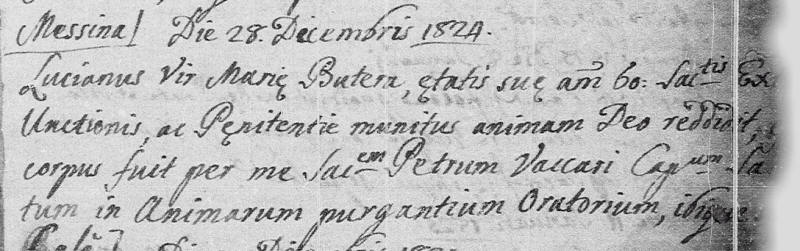 Messina] Die 28. Decembris 1824.
Lucianus Vir Marię Butera, ętatis suę am̄ 60: Sac^tis Ex
Unctionis, ac Pęnitentie munitus animam Deo reddidit,
corpus fuit per me Sac^em Petrum Vaccari Cap^um La
tum in Animarum purgantium Oratorium, ibique
Die Decembris